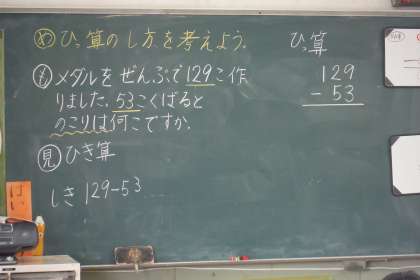 め ひっ算のし方を考えよう。
も メダルをぜんぶで129こ作
りました。53こくばると
のこりは何こですか。
見 ひき算
しき 129-53
ひっ算
129
- 53
はい